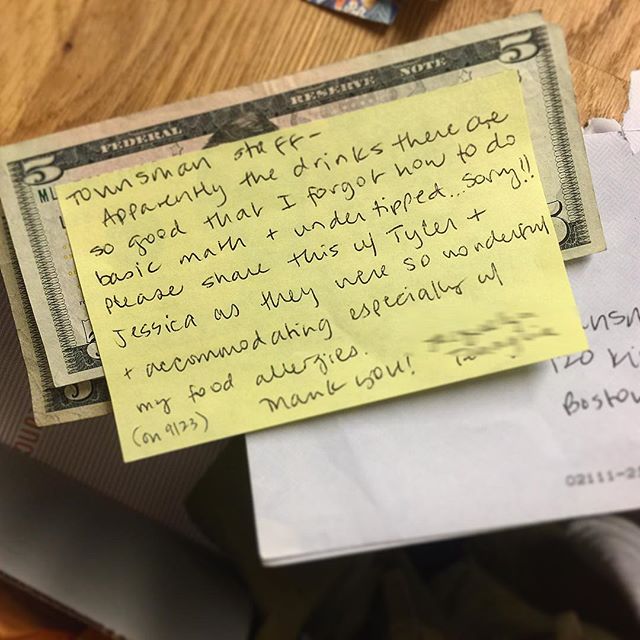 5 FEDERAL RESERVE NOTE 5
ML
Townsman staff-
Apparently the drinks there are
so good that I forgot how to do
basic math + under tipped... Sorry!!
please share this w/ Tyler +
Jessica as they were so wonderful
+ accommodating especially w/
my food allergies.
(on 9/23)
Thank you!
5
5
120 Ki
Boston
02111-2